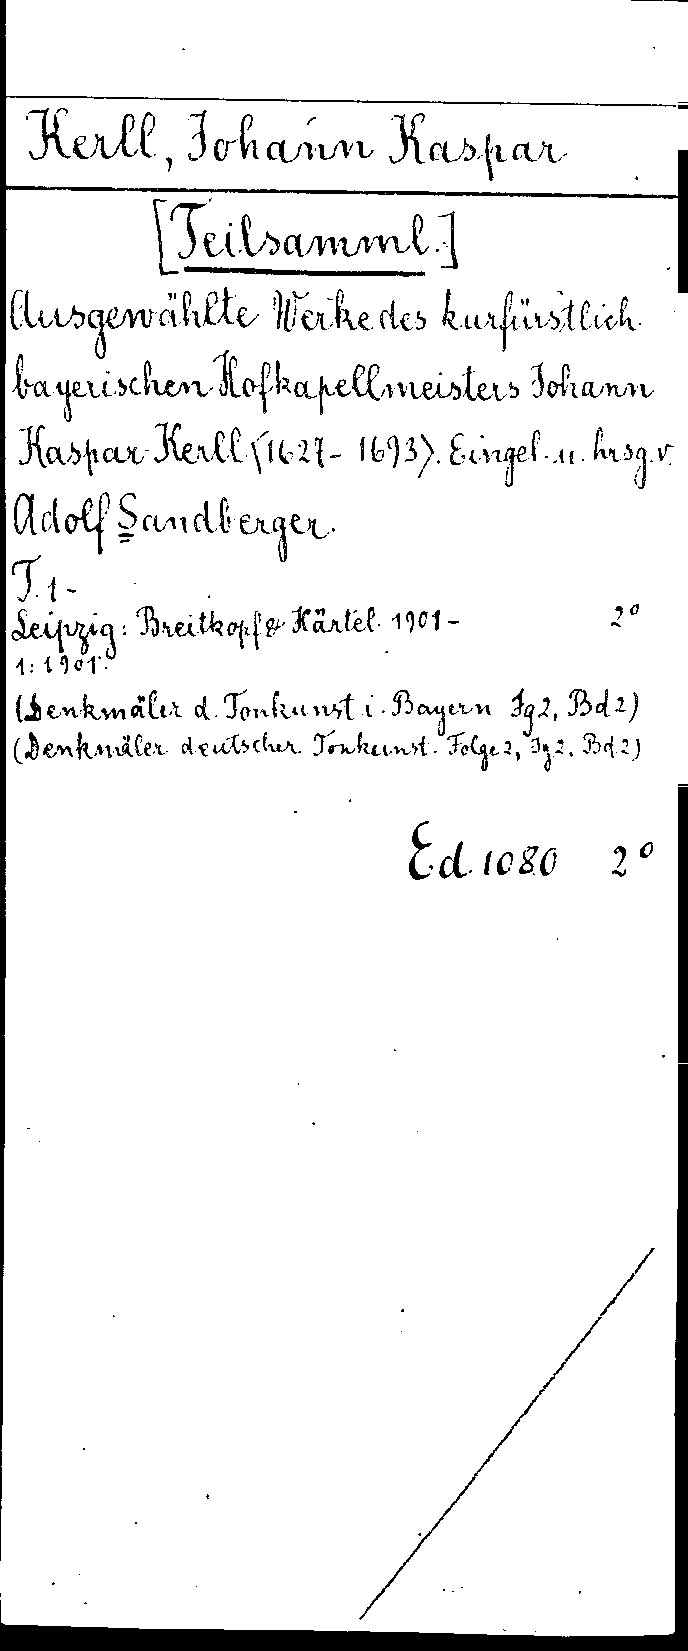 Kerll, Johann Kaspar
[Teilsamml.]
Ausgewählte Werke des kurfürstlich
bayerischen Hofkapellmeisters Johann
Kaspar Kerll <1627-1693>. Eingel. u. hrsg. v.
Adolf Sandberger.
T. 1-
Leipzig: Breitkopf & Härtel 1901- 2°
1: 1901.
(Denkmäler d. Tonkunst i. Bayern Jg 2, Bd 2)
(Denkmäler deutscher Tonkunst. Folge 2, Jg 2, Bd 2)
Ed. 1080 2°